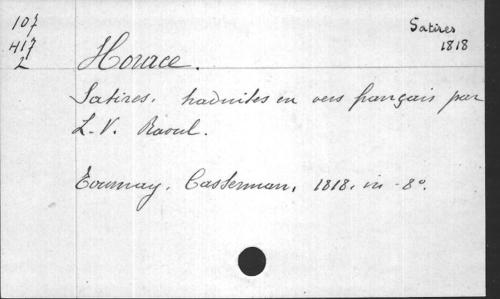 107
417
2
Satires
1818
Horace.
Satires. traduites en vers français par
L.-V. Raoul.
Tournay. Casterman, 1818. in-8°.